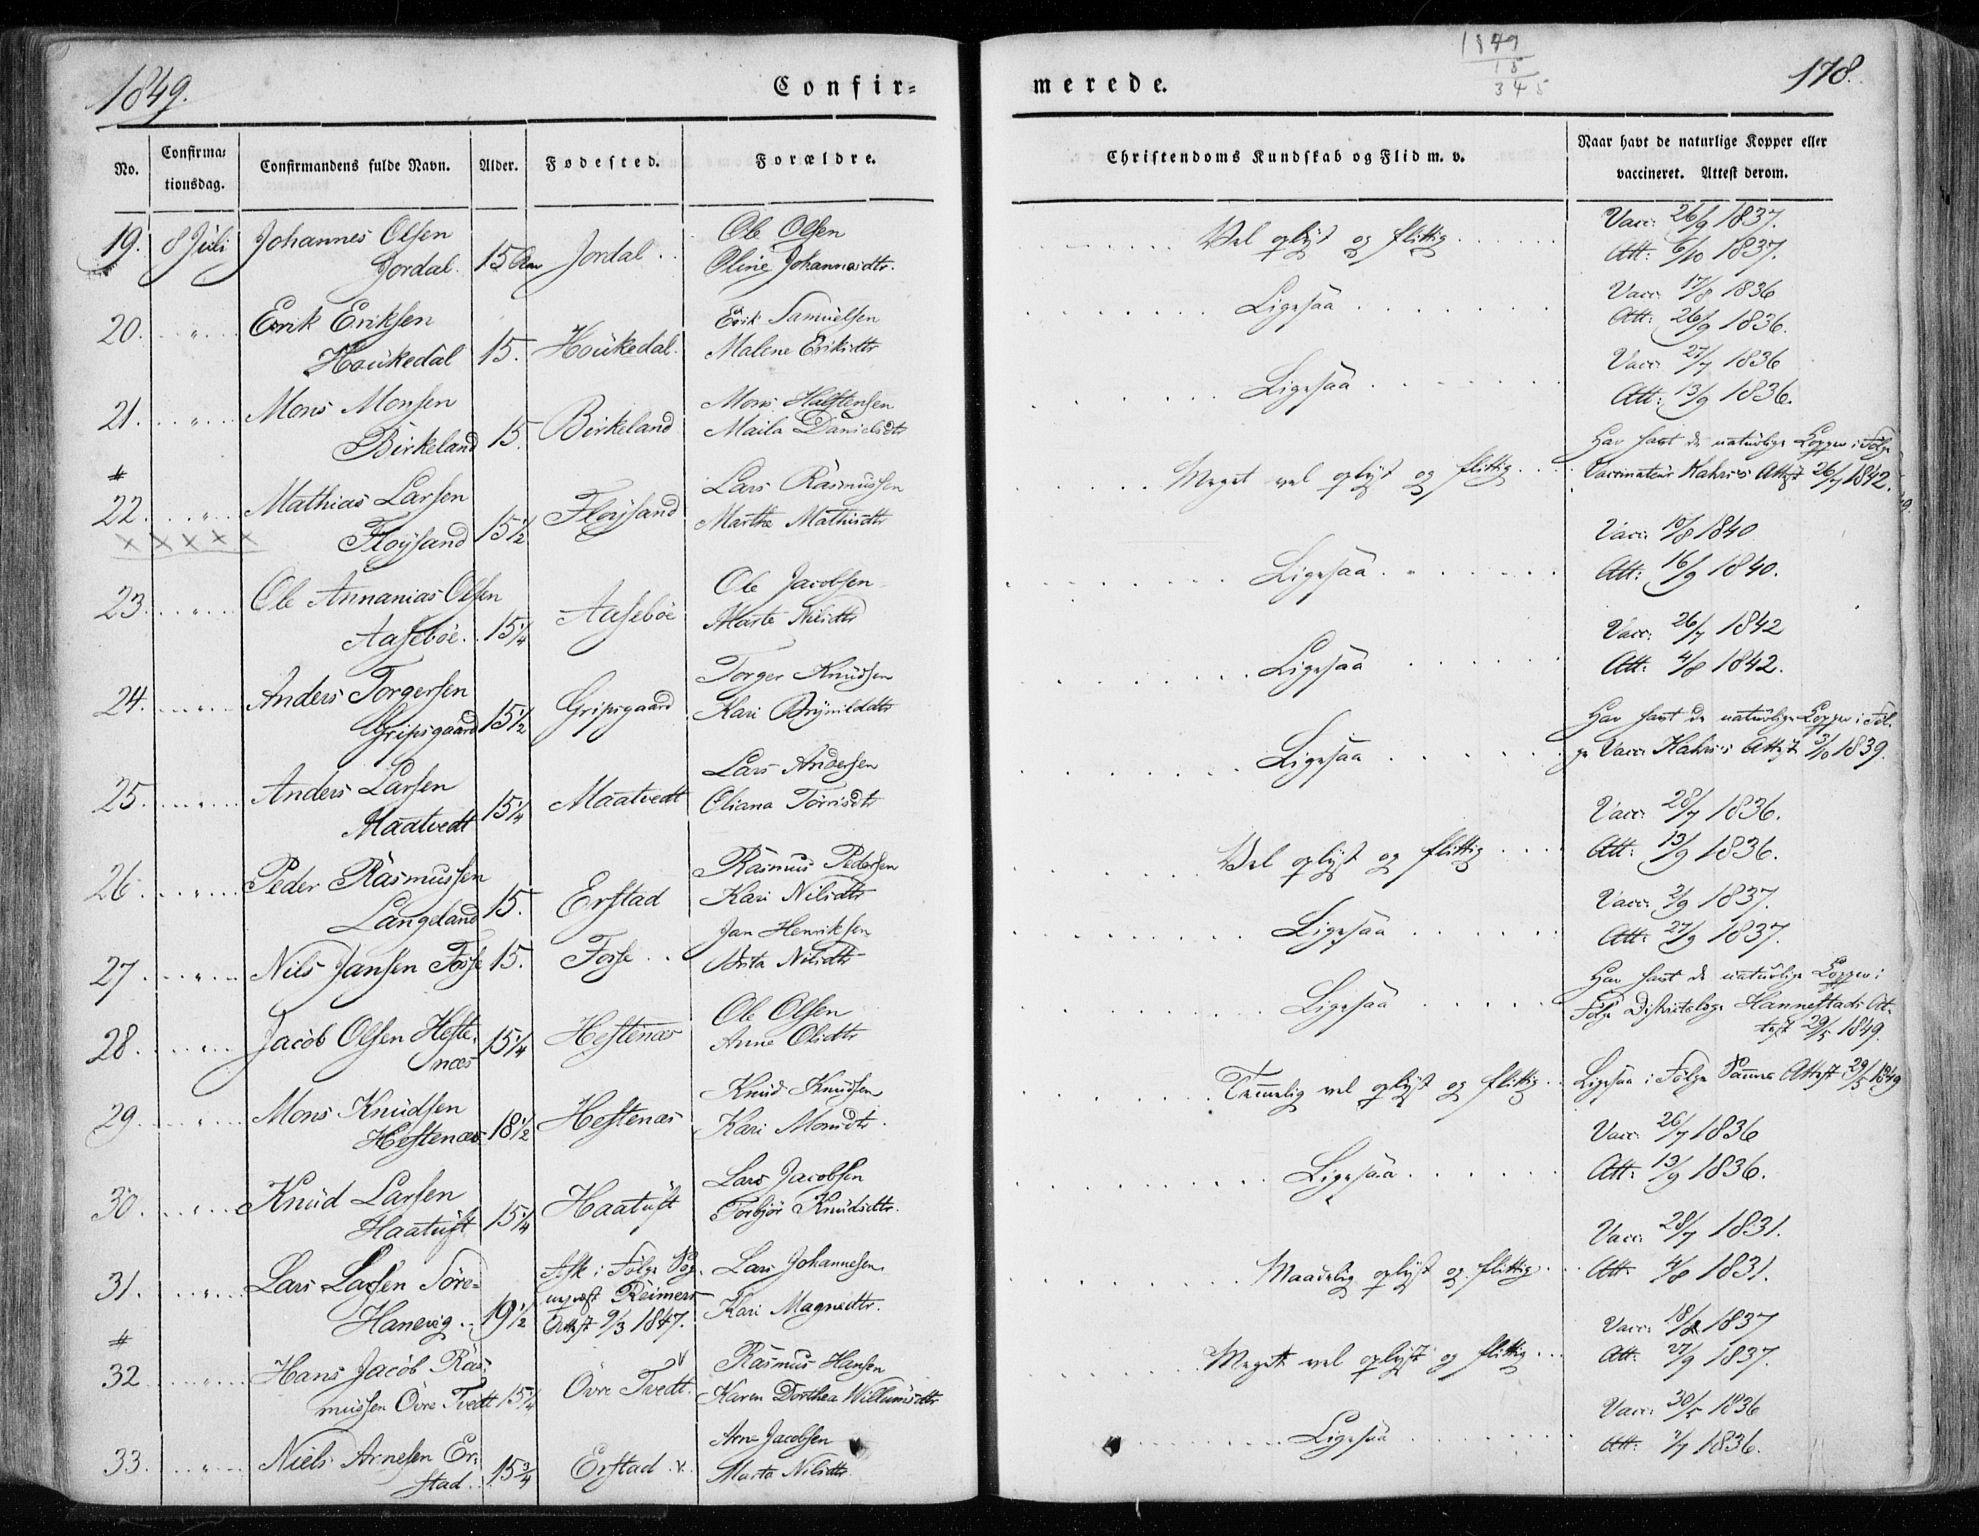 1849.
Confir=
merede.
1849
15
345
178.
No.
Confirma=
tionsdag.
Confirmandens fulde Navn.
Alder.
Fødested.
Forældre.
Christendoms Kundskab og Flid m. v.
Naar havt de naturlige Kopper eller
vaccineret. Attest derom.
19. 8 Juli Johannes Olsen
Jordal. 15 Jordal.
Ole Olsen
Oline Johannesdtr.
Vel oplyst og flittig
Vacc: 26/9 1837.
Att: 6/10 1837.
20. " Erik Eriksen
Houkedal 15. Houkedal.
Erik Samuelsen
Malene Eriksdtr
Ligesaa
Vacc: 17/8 1836
Att: 26/9 1836.
21. " Mons Monsen
Birkeland 15. Birkeland
Mons Halstensen
Maila Danielsdtr
Ligesaa
Vacc: 27/7 1836
Att: 13/9 1836.
#
22. " Mathias Larsen
Fløysand 15 1/2 Fløysand
x x x x x
Lars Rasmussen
Martha Mathisdtr
Meget vel oplyst og flittig
Har havt de naturlige Kopper i Følge
Vaccinateur Kahrs's Attest 26/7 1842.
23. " Ole Annanias Olsen
Aasebøe. 15 1/4 Aasebøe
Ole Jacobsen
Marte Nilsdtr
Ligesaa
Vacc: 10/8 1840
Att: 16/9 1840.
24. " Anders Torgersen
Gripsgaard 15 1/2 Gripsgaard
Torger Knudsen
Kari Brynildsdtr
Ligesaa
Vacc: 26/7 1842
Att: 4/8 1842.
25. " Anders Larsen
Maatvedt 15 1/4 Maatvedt
Lars Andersen
Oliana Torrisdtr
Ligesaa
Har havt de naturlige Kopper i Føl-
ge Vacc: Kahrs's Attest 3/10 1839.
26. " Peder Rasmussen
Langeland 15. Erstad
Rasmus Pedersen
Kari Nilsdtr
Vel oplyst og flittig
Vacc: 28/7 1836.
Att: 13/9 1836.
27. " Nils Jansen Fosse 15. Fosse
Jan Henriksen
Brita Nilsdtr
Ligesaa
Vacc: 2/9 1837.
Att: 27/9 1837.
28. " Jacob Olsen Heste-
næs 15 1/4 Hestenæs
Ole Olsen
Anne Olsdtr
Ligesaa
Har havt de naturlige Kopper i
Følge Districtslæge Hannestads At-
test 29/5 1849.
29. " Mons Knudsen
Hestenæs 18 1/2 Hestenæs
Knud Knudsen
Kari Monsdtr.
Temmelig vel oplyst og flittig
Ligesaa i Følge Samme Attest 29/5 1849
30. " Knud Larsen
Haatuft 15 1/4 Haatuft
Lars Jacobsen
Torbjør Knudsdtr.
Ligesaa
Vacc: 26/7 1836
Att: 13/9 1836.
31. " Lars Larsen Søre-
Hanevig. 19 1/2
Ask i Følge Sog-
nepræst Reimers
Attest 9/3 1847.
Lars Johannesen
Kari Magnedtr.
Maadelig oplyst og flittig
Vacc: 28/7 1831.
Att: 4/8 1831.
#
32 " Hans Jacob Ras-
mussen Övre Tvedt 15 1/4 Övre Tvedt.
Rasmus Hansen
Karen Dorthea Willumsdtr
Meget vel oplyst og flittig
Vacc: 18/8 1837
Att: 27/9 1837.
33. " Niels Arnesen Er-
stad. 15 3/4 Erstad
Arne Jacobsen
Marta Nilsdtr
Ligesaa
Vacc: 30/5 1836
Att: 7/7 1836.